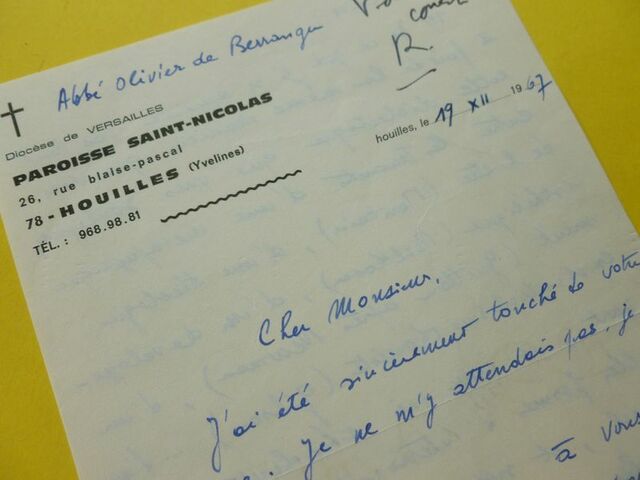 Abbé Olivier de Berranger
R.
Diocèse de VERSAILLES
PAROISSE SAINT-NICOLAS
26, rue blaise-pascal
78 - HOUILLES (Yvelines)
TÉL. : 968.98.81
houilles, le 19 XII 1967
Cher Monsieur,
J'ai été sincèrement touché de votre
. Je ne m'y attendais pas. je
à vous